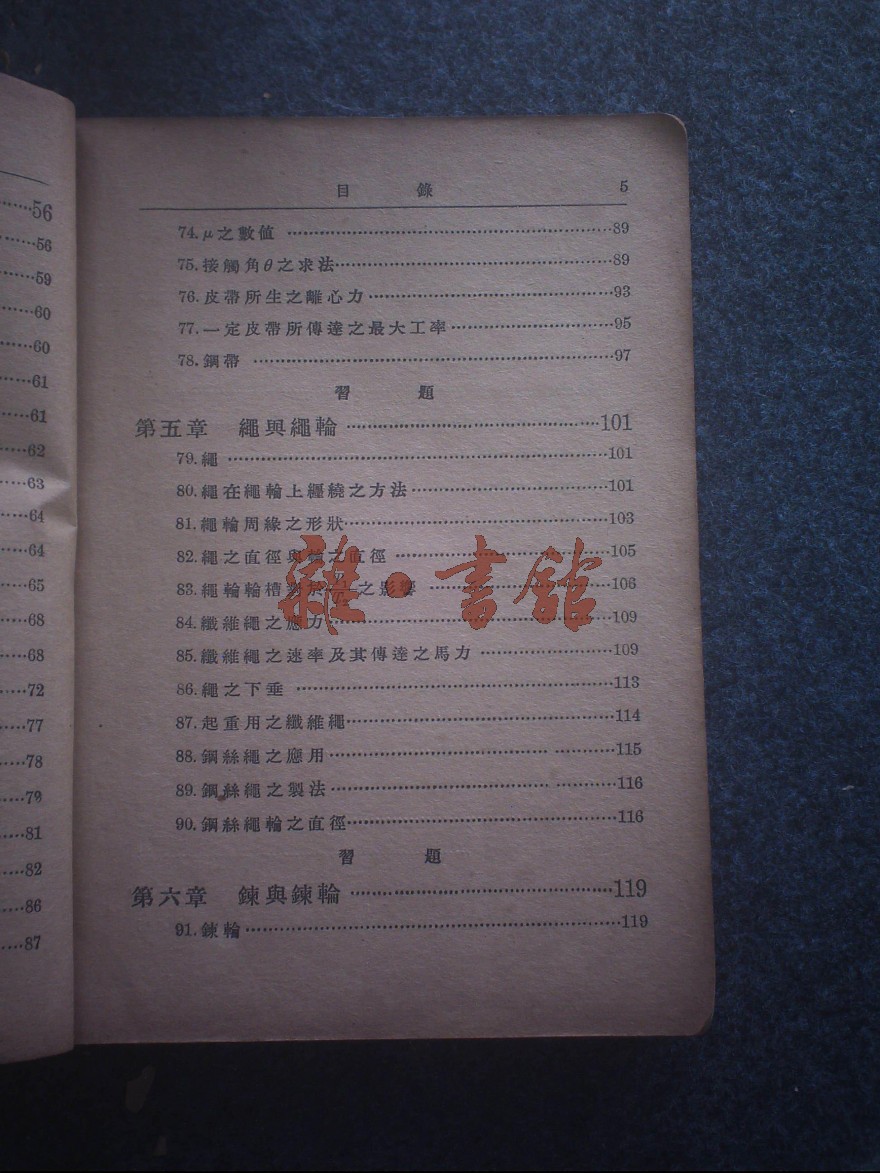 56
56
59
60
60
61
61
62
63
64
64
65
68
68
72
77
78
79
81
82
86
87
目 錄 5
74. μ之數値 89
75. 接觸角θ之求法 89
76. 皮帶所生之離心力 93
77. 一定皮帶所傳達之最大工率 95
78. 鋼帶 97
習 題
第五章 繩與繩輪 101
79. 繩 101
80. 繩在繩輪上纒繞之方法 101
81. 繩輪周緣之形狀 103
82. 繩之直徑與輪之直徑 105
83. 繩輪輪槽對於 之影響 108
84. 纖維繩之應力 109
85. 纖維繩之速率及其傳達之馬力 109
86. 繩之下垂 113
87. 起重用之纖維繩 114
88. 鋼絲繩之應用 115
89. 鋼絲繩之製法 116
90. 鋼絲繩輪之直徑 116
習 題
第六章 鍊與鍊輪 119
91. 鍊輪 119
雜·書館